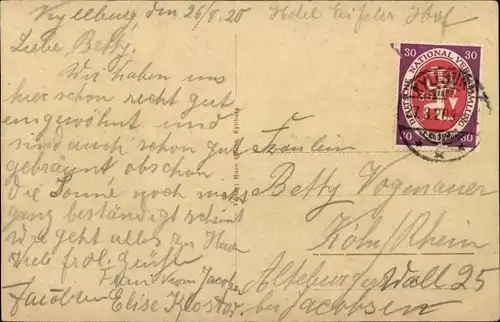 Kyllburg, den 26/8.20
Hotel Eifeler Hof
Liebe Betty.
Wir haben uns
hier schon recht gut
eingewöhnt und
sind auch schon gut
gebräunt obschon
die Sonne noch nicht
ganz beständig scheint
Wie geht alles zu Haus
Viele frdl. Grüße
Frau Jacobsen
Elise Kloster
Fräulein
Betty Vogenauer
Köln/Rhein
Alteburger Wall 25
bei Jacobsen
DEUTSCHE NATIONALVERSAMMLUNG
1919
30 30
30 30